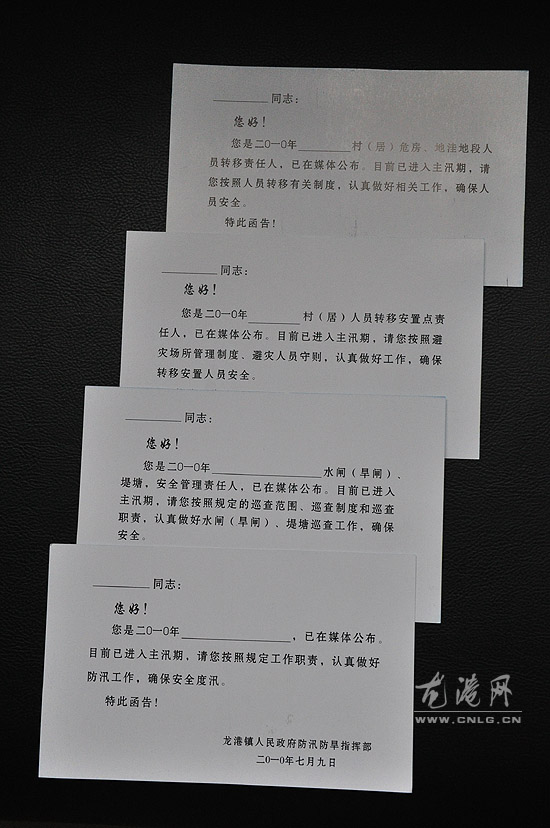 ________同志：
您好！
您是二〇一〇年________村（居）危房、地洼地段人
员转移责任人，已在媒体公布。目前已进入主汛期，请
您按照人员转移有关制度，认真做好相关工作，确保人
员安全。
特此函告！
________同志：
您好！
您是二〇一〇年________村（居）人员转移安置点责
任人，已在媒体公布。目前已进入主汛期，请您按照避
灾场所管理制度、避灾人员守则，认真做好工作，确保
转移安置人员安全。
________同志：
您好！
您是二〇一〇年________________水闸（旱闸）、
堤塘，安全管理责任人，已在媒体公布。目前已进入
主汛期，请您按照规定的巡查范围、巡查制度和巡查
职责，认真做好水闸（旱闸）、堤塘巡查工作，确保
安全。
________同志：
您好！
您是二〇一〇年________________，已在媒体公布。
目前已进入主汛期，请您按照规定工作职责，认真做好
防汛工作，确保安全度汛。
特此函告！
龙港镇人民政府防汛防旱指挥部
二〇一〇年七月九日
龙港网
WWW.CNLG.CN